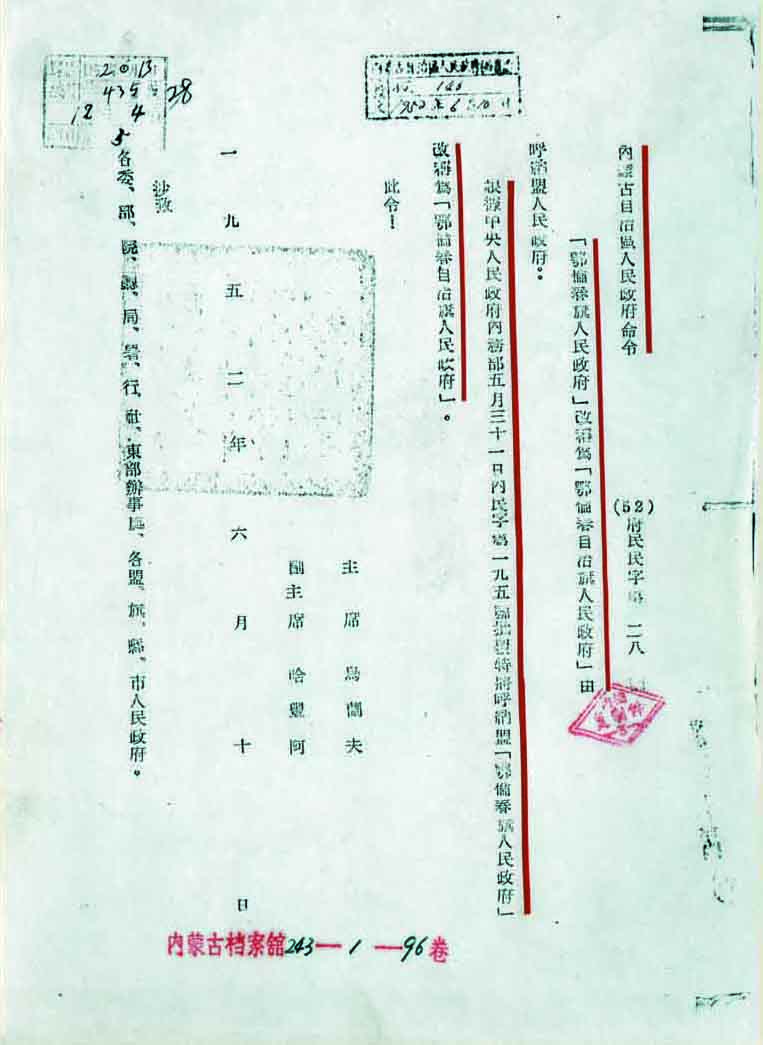 內蒙古自治區人民政府命令
(52)府民民字第二八
「鄂倫春旗人民政府」改稱爲「鄂倫春自治旗人民政府」由
呼納盟人民政府。
根據中央人民政府內務部五月三十一日內民字第一九五號批覆特將呼納盟「鄂倫春旗人民政府」
改稱爲「鄂倫春自治旗人民政府」。
此令！
主席 烏蘭夫
副主席 哈豐阿
一九五二年六月十日
抄致
各委、部、院、廳、局、署、行、社、東部辦事處、各盟、旗、縣、市人民政府。
內蒙古自治區人民政府
146
1952年6月10日
2013
435
12 4
5
28
内蒙古档案館243—1—96卷